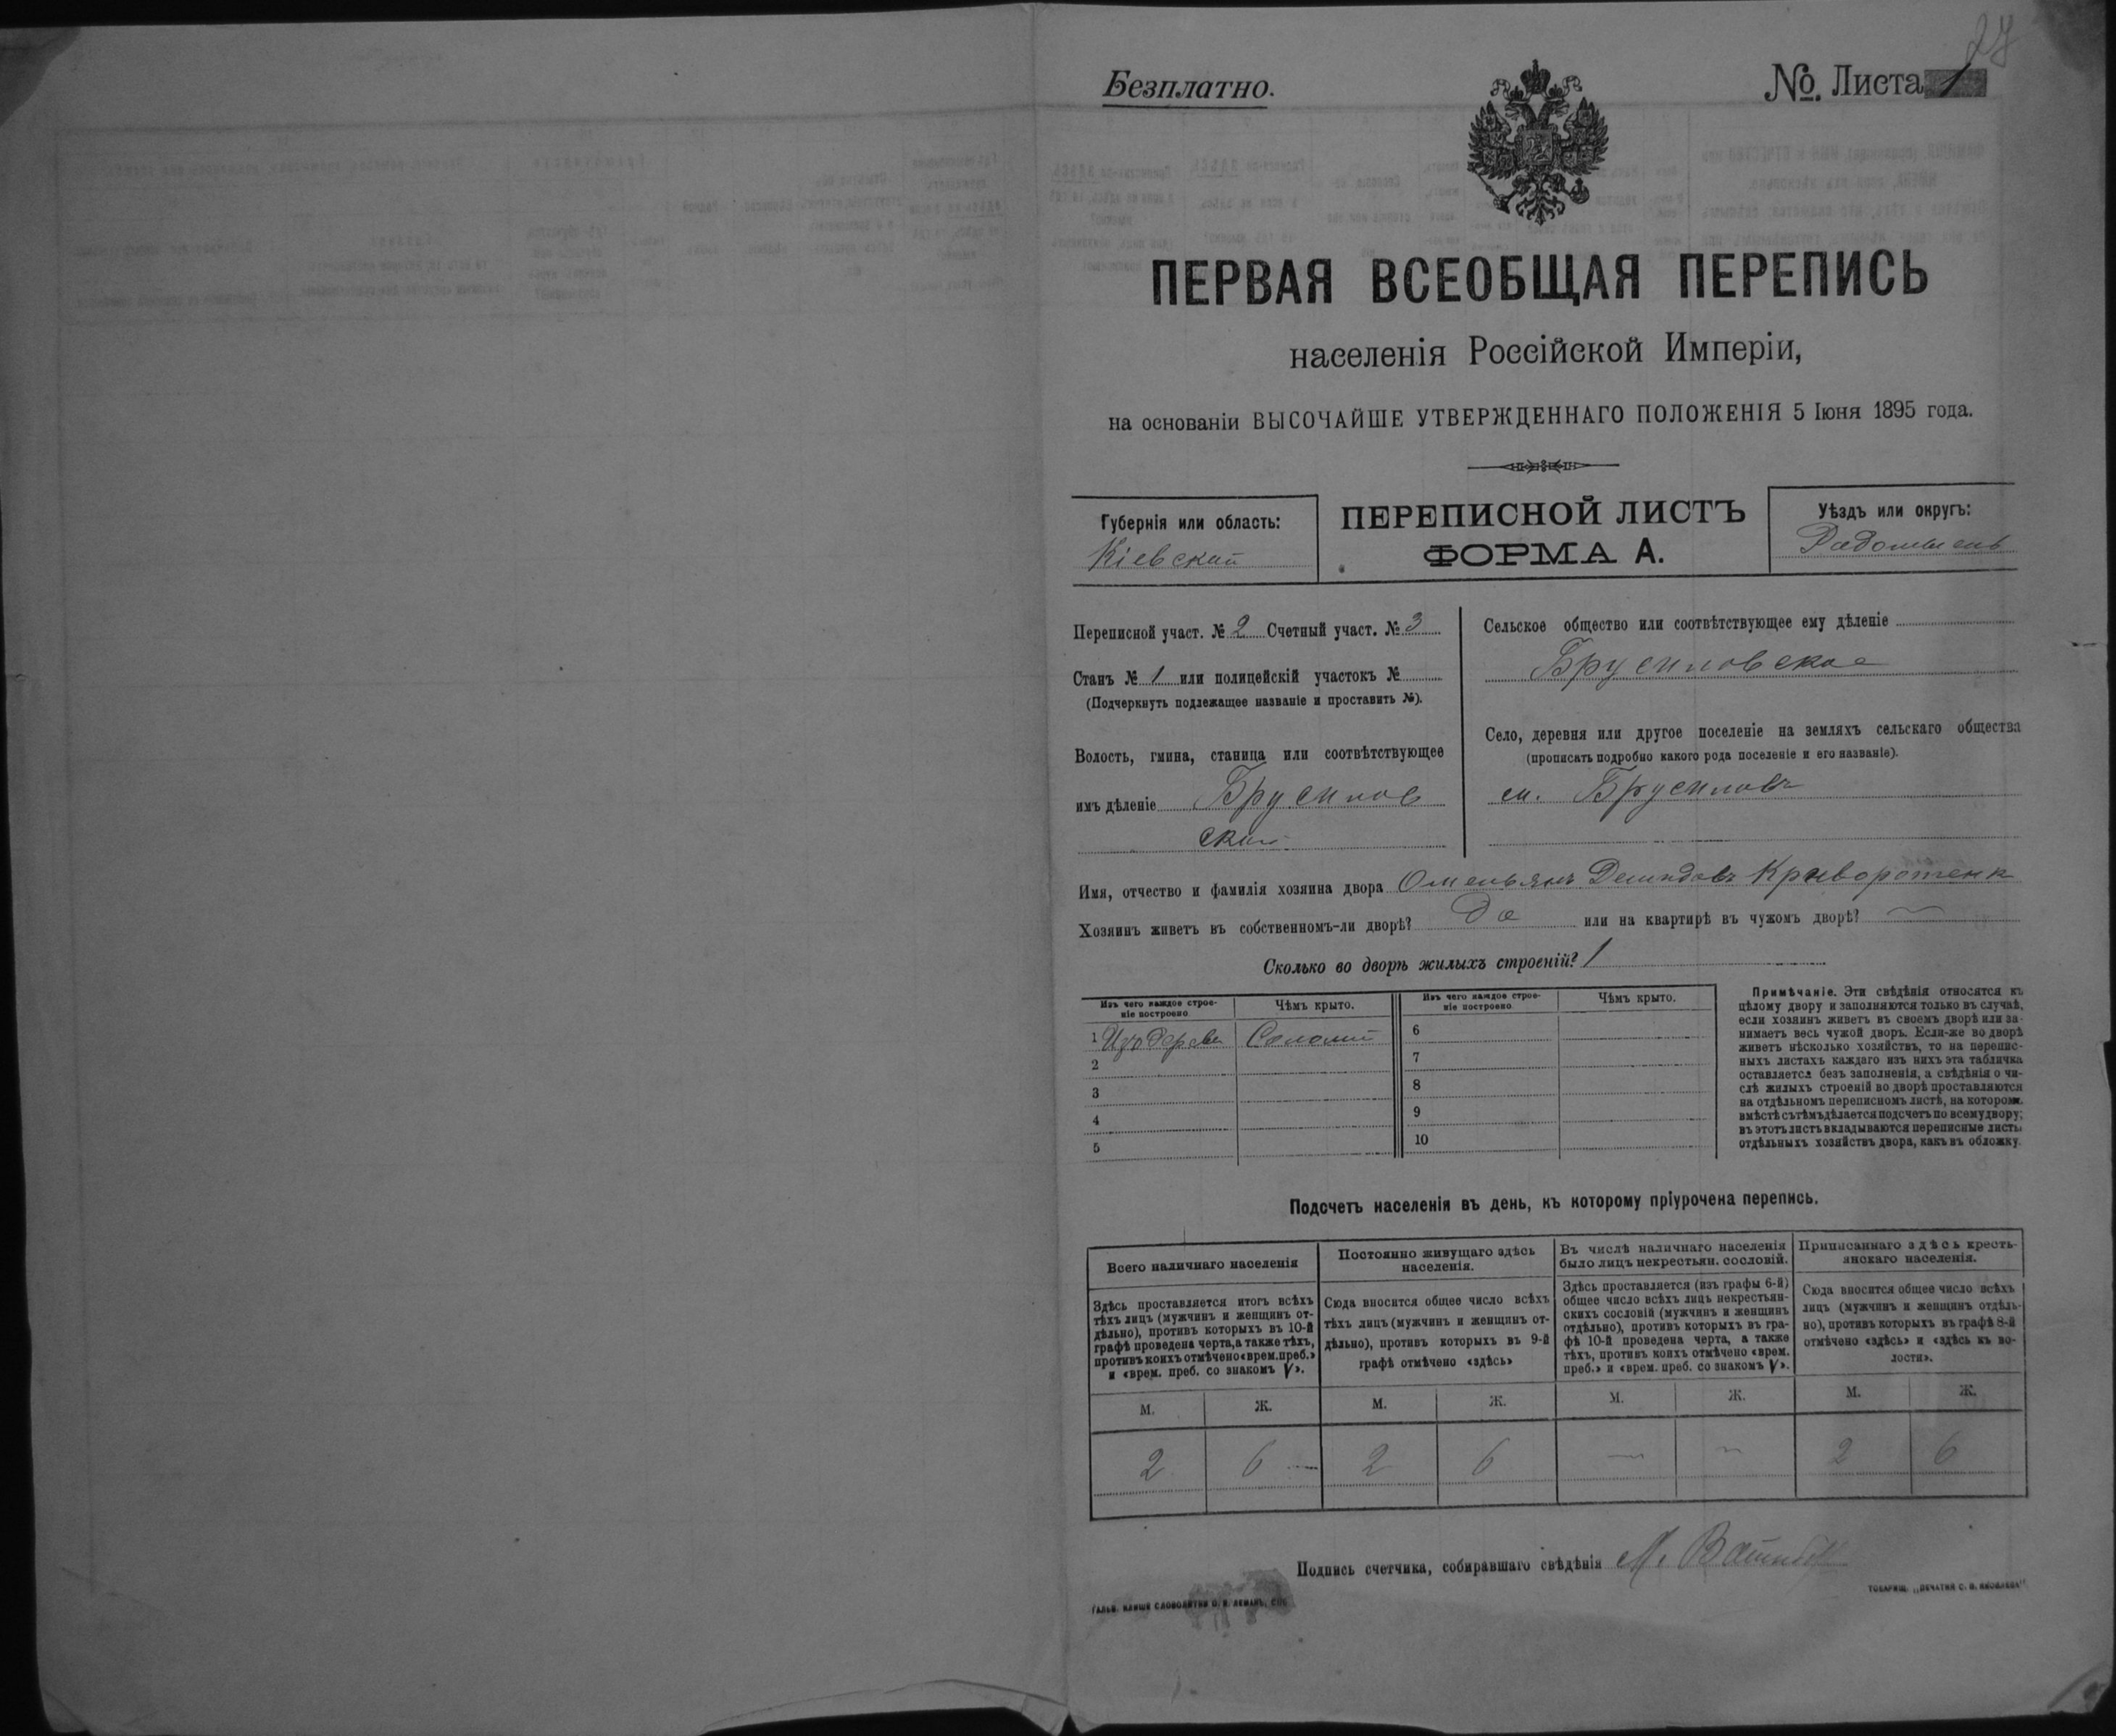 27
Безплатно.
№. Листа 1
ПЕРВАЯ ВСЕОБЩАЯ ПЕРЕПИСЬ
населенія Россійской Имперіи,
на основаніи ВЫСОЧАЙШЕ УТВЕРЖДЕННАГО ПОЛОЖЕНІЯ 5 Іюня 1895 года.
Губернія или область:
Кіевская
ПЕРЕПИСНОЙ ЛИСТЪ
ФОРМА А.
Уѣздъ или округъ:
Радомысль
Переписной участ. № 2 Счетный участ. № 3
Станъ № 1 или полицейскій участокъ №
(Подчеркнуть подлежащее названіе и проставить №).
Волость, гмина, станица или соотвѣтствующее
имъ дѣленіе Брусилов
ская
Сельское общество или соотвѣтствующее ему дѣленіе
Брусиловское
Село, деревня или другое поселеніе на земляхъ сельскаго общества
(прописать подробно какого рода поселеніе и его названіе).
м. Брусиловъ
Имя, отчество и фамилія хозяина двора Омельянъ Демидовъ Криворотенк
Хозяинъ живетъ въ собственномъ-ли дворѣ? Да или на квартирѣ въ чужомъ дворѣ? —
Сколько во дворѣ жилыхъ строеній? 1
Изъ чего каждое строе-
ніе построено
Чѣмъ крыто.
Изъ чего каждое строе-
ніе построено
Чѣмъ крыто.
1 Изъ дерева Соломой
2
3
4
5
6
7
8
9
10
Примѣчаніе. Эти свѣдѣнія относятся къ
цѣлому двору и заполняются только въ случаѣ,
если хозяинъ живетъ въ своемъ дворѣ или за-
нимаетъ весь чужой дворъ. Если-же во дворѣ
живетъ нѣсколько хозяйствъ, то на перепис-
ныхъ листахъ каждаго изъ нихъ эта табличка
оставляется безъ заполненія, а свѣдѣнія о чи-
слѣ жилыхъ строеній во дворѣ проставляются
на отдѣльномъ переписномъ листѣ, на которомъ
вмѣстѣ съ тѣмъ дѣлается подсчетъ по всему двору;
въ этотъ листъ вкладываются переписные листы
отдѣльныхъ хозяйствъ двора, какъ въ обложку.
Подсчетъ населенія въ день, къ которому пріурочена перепись.
Всего наличнаго населенія
Здѣсь проставляется итогъ всѣхъ
тѣхъ лицъ (мужчинъ и женщинъ от-
дѣльно), противъ которыхъ въ 10-й
графѣ проведена черта, а также тѣхъ,
противъ коихъ отмѣчено «врем. преб.»
и «врем. преб. со знакомъ V».
Постоянно живущаго здѣсь
населенія.
Сюда вносится общее число всѣхъ
тѣхъ лицъ (мужчинъ и женщинъ от-
дѣльно), противъ которыхъ въ 9-й
графѣ отмѣчено «здѣсь»
Въ числѣ наличнаго населенія
было лицъ некрестьян. сословій.
Здѣсь проставляется (изъ графы 6-й)
общее число всѣхъ лицъ некрестьян-
скихъ сословій (мужчинъ и женщинъ
отдѣльно), противъ которыхъ въ гра-
фѣ 10-й проведена черта, а также
тѣхъ, противъ коихъ отмѣчено «врем.
преб.» и «врем. преб. со знакомъ V».
Приписаннаго здѣсь кресть-
янскаго населенія.
Сюда вносится общее число всѣхъ
лицъ (мужчинъ и женщинъ отдѣль-
но), противъ которыхъ въ графѣ 8-й
отмѣчено «здѣсь» и «здѣсь къ во-
лости».
М. Ж. М. Ж. М. Ж. М. Ж.
2 6 2 6 — — 2 6
Подпись счетчика, собиравшаго свѣдѣнія М.
ГАЛЬВ. КЛИШЕ СЛОВОЛИТНИ О. И. ЛЕМАНЪ, СПБ.
ТОВАРИЩ. „ПЕЧАТНЯ С. П. ЯКОВЛЕВА“